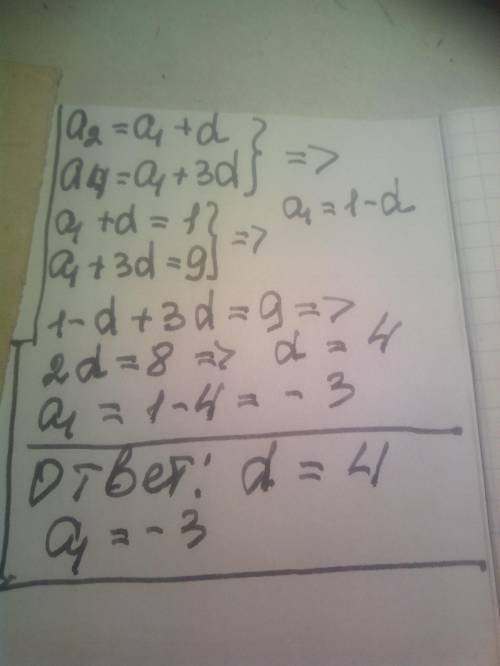 a₂ = a₁ + d
a₄ = a₁ + 3d } =>
a₁ + d = 1 } => a₁ = 1 - d
a₁ + 3d = 9
1 - d + 3d = 9 =>
2d = 8 => d = 4
a₁ = 1 - 4 = - 3
Ответ: d = 4
a₁ = - 3